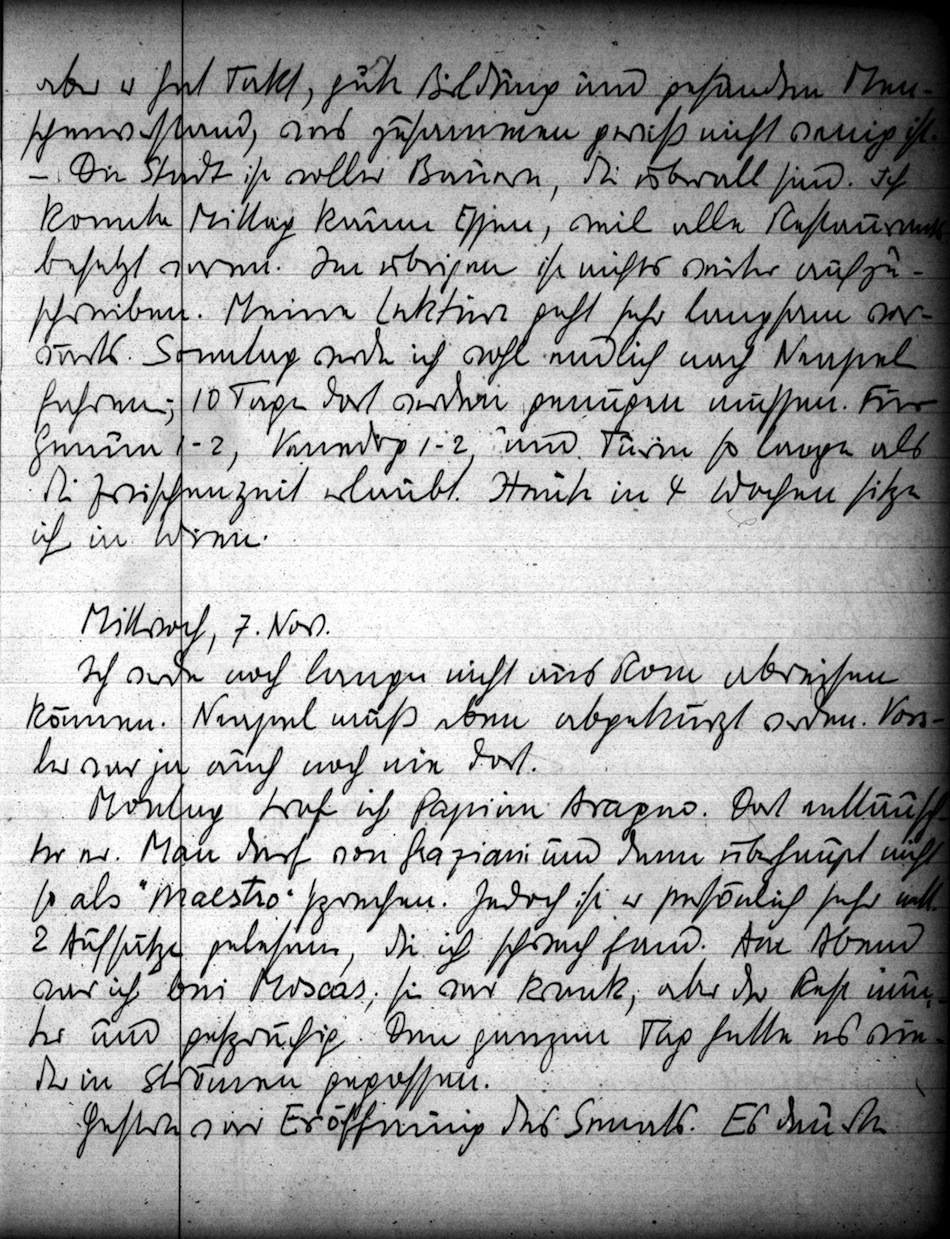 aber er hat Takt, gute Bildung und gesunden Men-
schenverstand, was zusammen gewiß nicht wenig ist.
– Die Stadt ist voller Bauern, die überall sind. Ich
konnte Mittag kaum Essen, weil alle Restaurants
besetzt waren. Im übrigen ist nichts weiter aufzu-
schreiben. Meine Lektüre geht sehr langsam vor-
wärts. Sonntag werde ich wohl endlich nach Neapel
fahren; 10 Tage dort werden genügen müssen. Für
Genua 1-2, 1-2, und Turin so lange als
die Zwischenzeit erlaubt. Heute in 4 Wochen sitze
ich in Wien.
Mittwoch, 7. Nov.
Ich werde noch lange nicht aus Rom abreisen
können. Neapel muß eben abgekürzt werden. Voss-
ler war ja auch noch nie dort.
Montag traf ich Papini im Aragno. Dort enttäusch-
te er. Man darf von Graziani und dann überhaupt nicht
so als "Maestro" sprechen. Jedoch ist er persönlich sehr nett.
2 Aufsätze gelesen, die ich schwach fand. Am Abend
war ich bei Moscas; sie war krank, aber der Rest mun-
ter und gesprächig. Den ganzen Tag hatte es wie-
der in Strömen gegossen.
Gestern war Eröffnung des Senats. Es dauerte